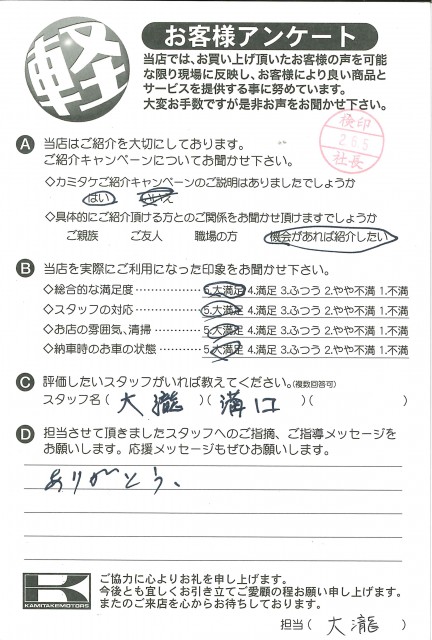 軽
お客様アンケート
当店では、お買い上げ頂いたお客様の声を可能
な限り現場に反映し、お客様により良い商品と
サービスを提供する事に努めています。
大変お手数ですが是非お声をお聞かせ下さい。
検印
2.6.5
社長
A 当店はご紹介を大切にしております。
ご紹介キャンペーンについてお聞かせ下さい。
◇カミタケご紹介キャンペーンのご説明はありましたでしょうか
はい いいえ
◇具体的にご紹介頂ける方とのご関係をお聞かせ頂けますでしょうか
ご親族 ご友人 職場の方 機会があれば紹介したい
B 当店を実際にご利用になった印象をお聞かせ下さい。
◇総合的な満足度 ‥‥‥‥‥‥ 5.大満足 4.満足 3.ふつう 2.やや不満 1.不満
◇スタッフの対応 ‥‥‥‥‥‥ 5.大満足 4.満足 3.ふつう 2.やや不満 1.不満
◇お店の雰囲気、清掃 ‥‥‥‥ 5.大満足 4.満足 3.ふつう 2.やや不満 1.不満
◇納車時のお車の状態 ‥‥‥‥ 5.大満足 4.満足 3.ふつう 2.やや不満 1.不満
C 評価したいスタッフがいれば教えてください。(複数回答可)
スタッフ名( 大瀧 )( 溝口 )( )
D 担当させて頂きましたスタッフへのご指摘、ご指導メッセージを
お願いします。応援メッセージもぜひお願いします。
ありがとう、
K
KAMITAKEMOTORS
ご協力に心よりお礼を申し上げます。
今後とも宜しくお引き立てご愛顧の程お願い申し上げます。
またのご来店を心からお待ちしております。
担当( 大瀧 )